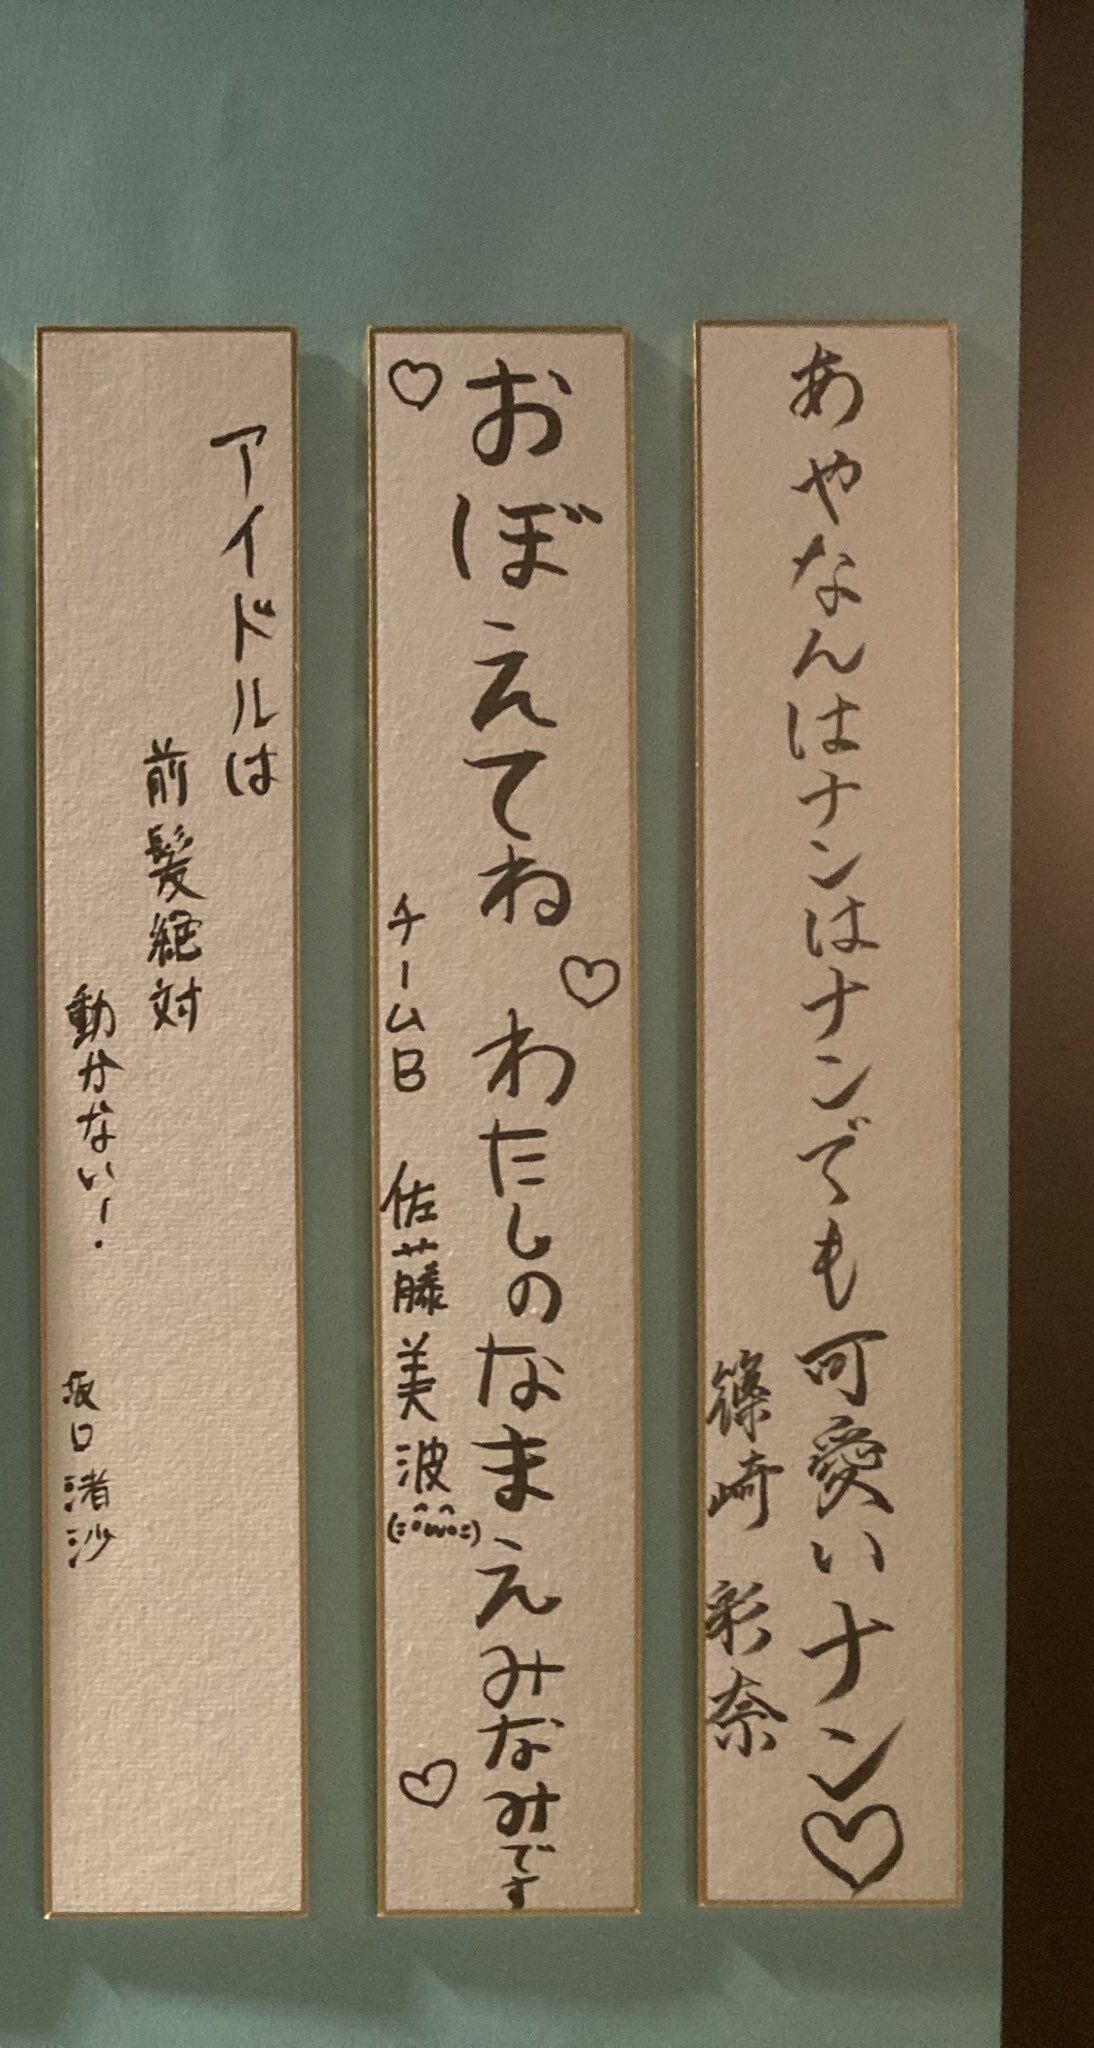 あやなんはナンはナンでも可愛いナン♡
篠崎 彩奈
おぼえてね♡わたしのなまえみなみです
チームB 佐藤美波
アイドルは
前髪絶対
動かないー．
坂口渚沙